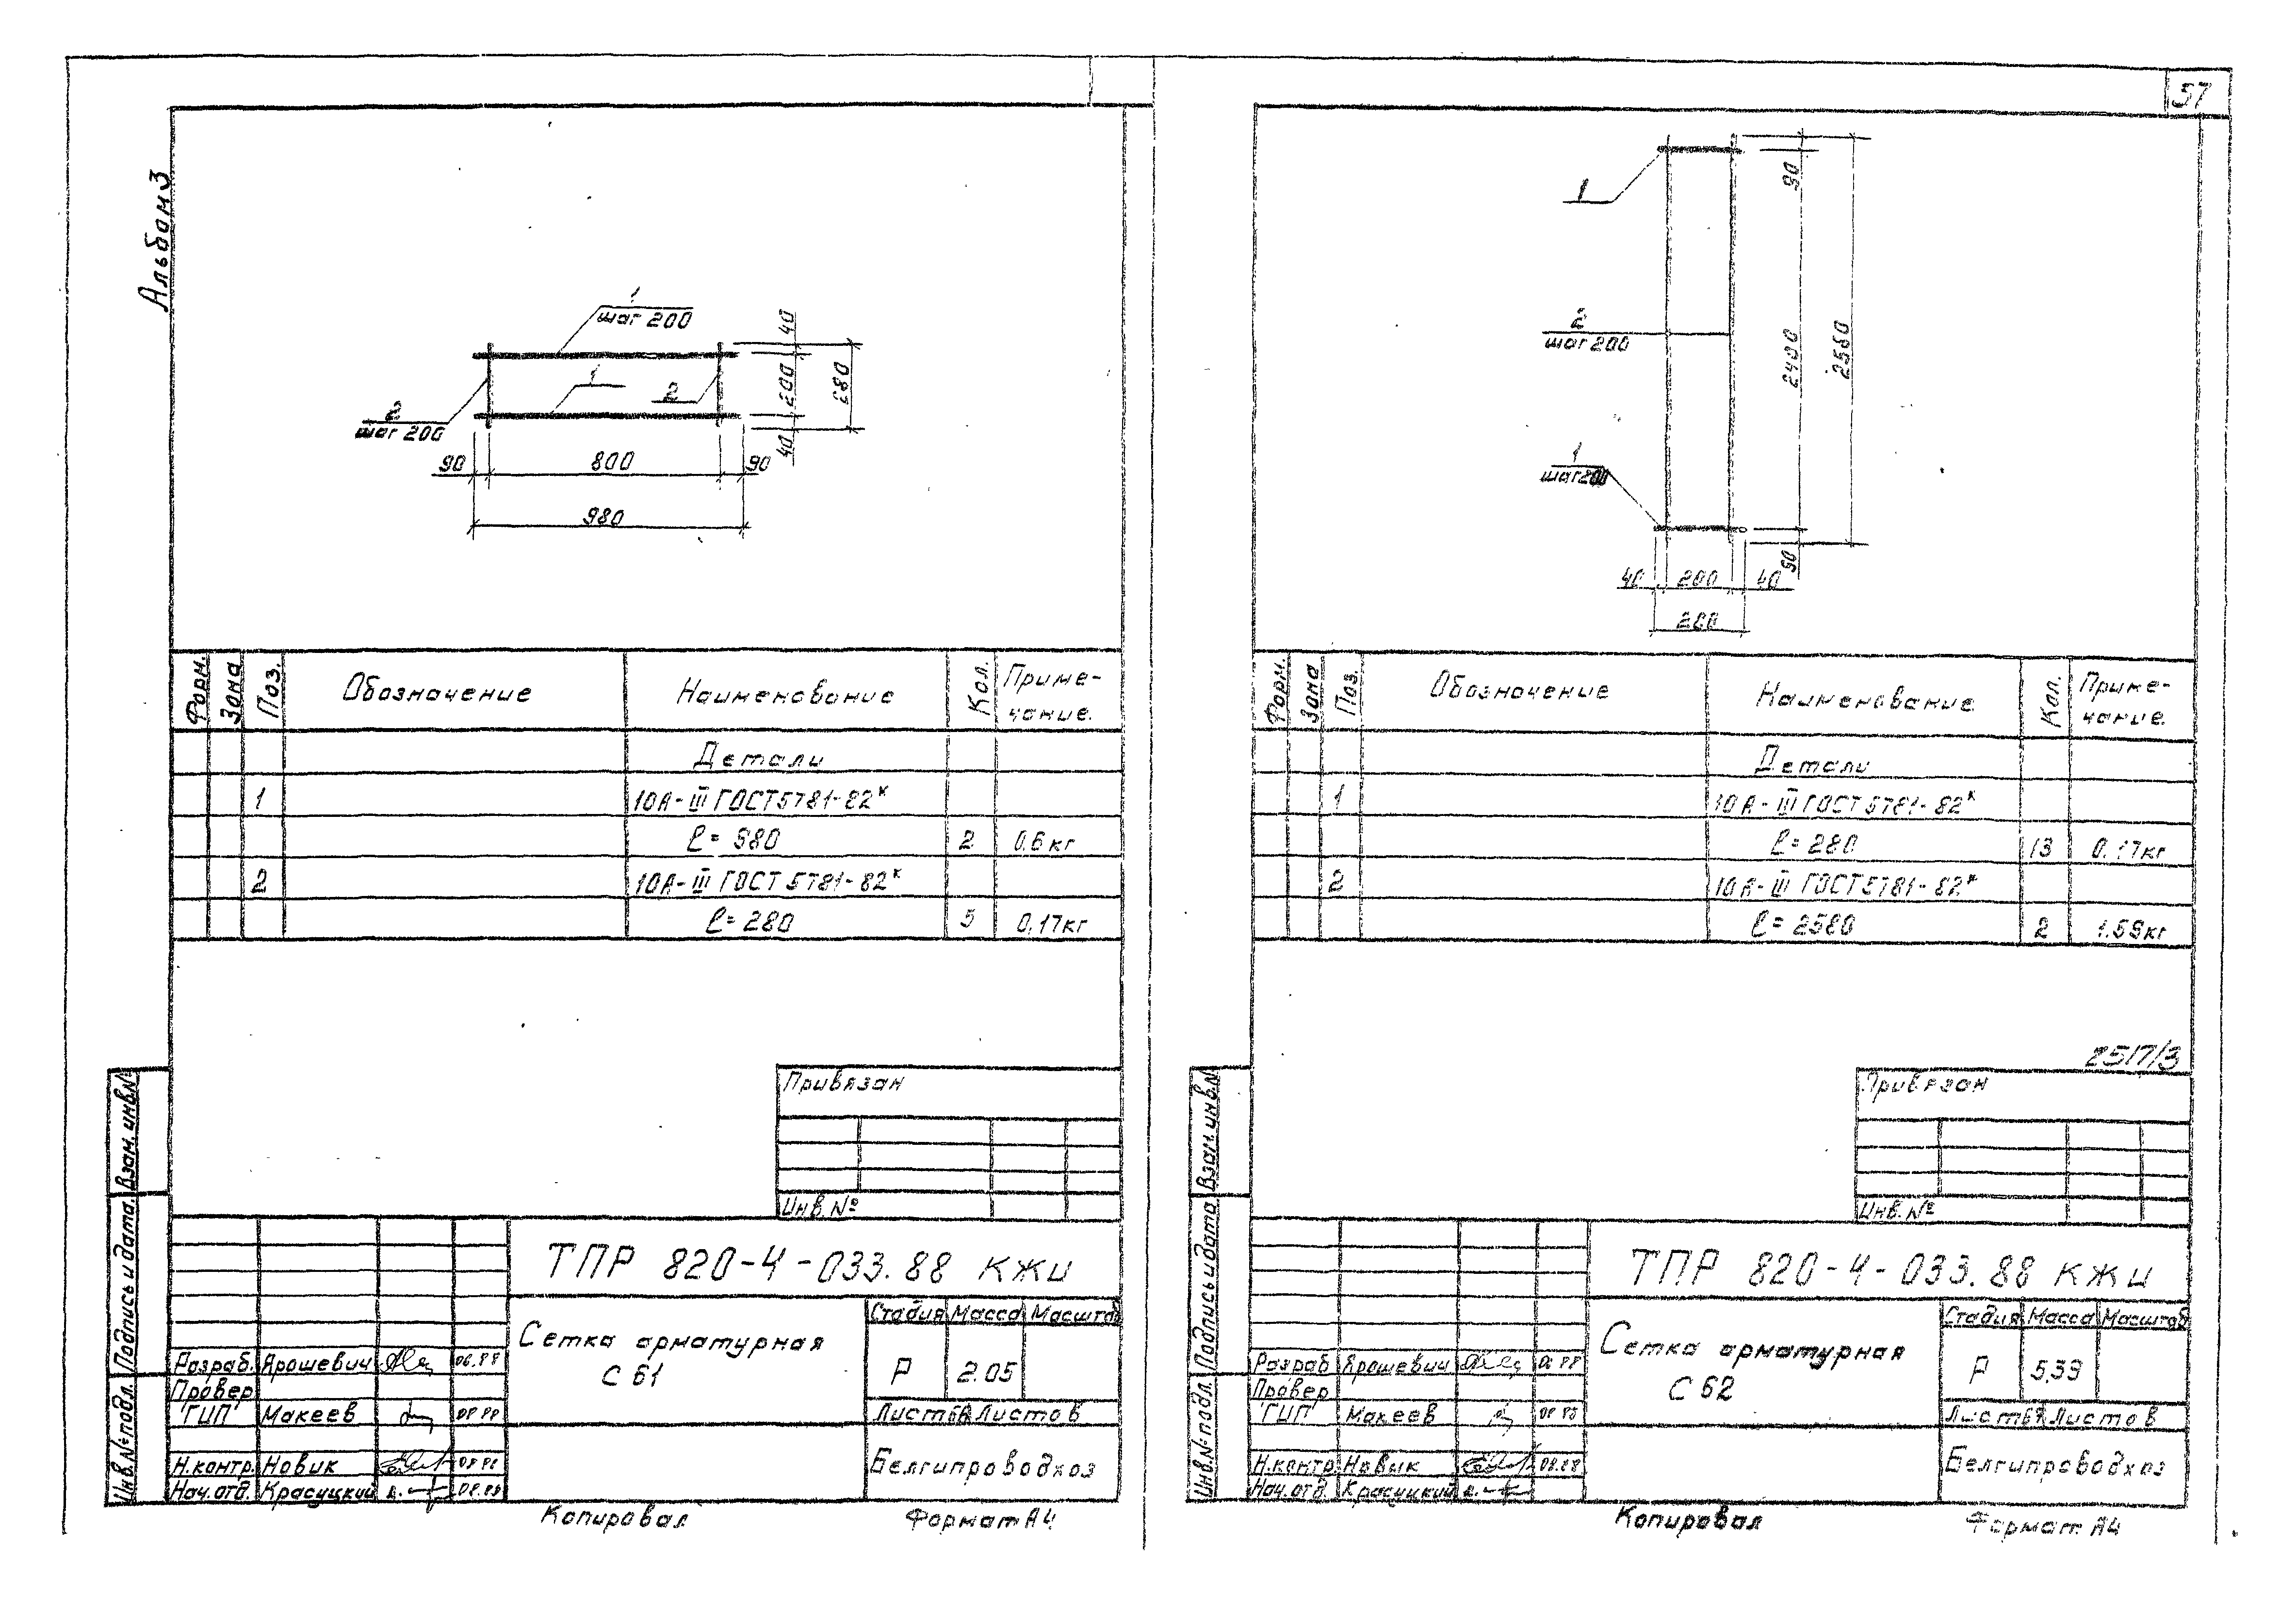 57
Альбом 3
1
шаг 200
1
2
2
шаг 200
40
200
280
40
90
800
90
980
Форм.
Зона
Поз.
Обозначение
Наименование
Кол.
Приме-
чание.
Детали
1
10А-III ГОСТ 5781-82*
ℓ= 980
2
0.6кг
2
10А-III ГОСТ 5781-82*
ℓ= 280
5
0,17кг
Привязан
Инв. №
Взам. инв.№
Подпись и дата
Инв.№ подл.
ТПР 820-4-033.88 КЖИ
Сетка арматурная
С 61
Стадия Масса Масштаб
Р
2.05
Лист Листов
Белгипроводхоз
Разраб. Ярошевич 06.88
Провер
ГИП Макеев
Н.контр. Новик
Нач.отд. Красуцкий 08.88
Копировал
Формат А4
1
2
шаг 200
1
шаг 200
90
2400
2580
90
40
200
40
280
Форм.
Зона
Поз.
Обозначение
Наименование
Кол.
Приме-
чание.
Детали
1
10А-III ГОСТ 5781-82*
ℓ= 280
13
0.17кг
2
10А-III ГОСТ 5781-82*
ℓ= 2580
2
1.59кг
2517/3
Привязан
Инв. №
Взам. инв.№
Подпись и дата
Инв.№ подл.
ТПР 820-4-033.88 КЖИ
Сетка арматурная
С 62
Стадия Масса Масштаб
Р
5,39
Лист Листов
Белгипроводхоз
Разраб Ярошевич
Провер
ГИП Макеев
Н.контр Новик 08.88
Нач.отд. Красуцкий
Копировал
Формат А4